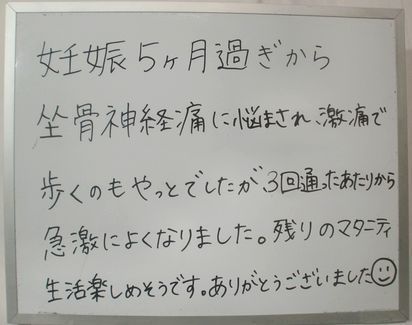 妊娠5ヶ月過ぎから
坐骨神経痛に悩まされ、激痛で
歩くのもやっとでしたが、3回通ったあたりから
急激によくなりました。残りのマタニティ
生活楽しめそうです。ありがとうございました☺